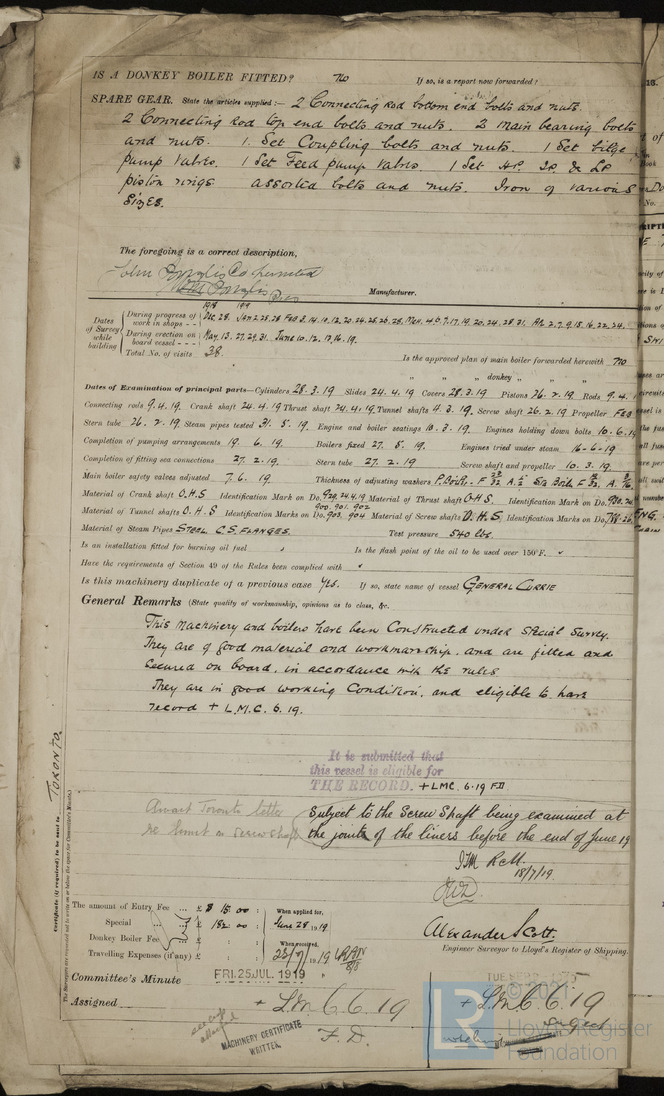 IS A DONKEY BOILER FITTED? No If so, is a report now forwarded?
SPARE GEAR. State the articles supplied:— 2 Connecting rod bottom end bolts and nuts.
2 Connecting rod top end bolts and nuts. 2 Main bearing bolts
and nuts. 1 Set Coupling bolts and nuts. 1 Set bilge
pump valves. 1 Set Feed pump valves. 1 Set H.P. I.P. & L.P.
piston rings assorted bolts and nuts. Iron of various
sizes.
The foregoing is a correct description,
John Manufacturer.
Dates of Survey while building
During progress of work in shops - - 1918 Dec. 28. Jan 2. 25. 28 Feb 3. 14. 19. 12. 20. 24. 25. 26. 28. Mch. 4. 6. 7. 17. 19. 20. 24. 28. 31. Ap. 2. 7. 9. 15. 16. 22. 24.
During erection on board vessel - - - May. 13. 27. 29. 31. June 10. 12. 13. 16. 19.
Total No. of visits 38.
Is the approved plan of main boiler forwarded herewith No
" " " donkey " " "
Dates of Examination of principal parts—Cylinders 28.3.19 Slides 24.4.19 Covers 28.3.19 Pistons 26.2.19 Rods 9.4.
Connecting rods 9.4.19. Crank shaft 24.4.19 Thrust shaft 24.4.19. Tunnel shafts 4.3.19. Screw shaft 26.2.19 Propeller FEB
Stern tube 26.2.19 Steam pipes tested 31.5.19. Engine and boiler seatings 10.3.19. Engines holding down bolts 10.6.19
Completion of pumping arrangements 19.6.19. Boilers fixed 27.5.19. Engines tried under steam 16-6-19
Completion of fitting sea connections 27.2.19. Stern tube 27.2.19 Screw shaft and propeller 10.3.19.
Main boiler safety valves adjusted 7.6.19 Thickness of adjusting washers P. Boilr.
Material of Crank shaft O.H.S Identification Mark on Do. 920. 24.4.19 Material of Thrust shaft O.H.S. Identification Mark on Do.
Material of Tunnel shafts O.H.S Identification Marks on Do. 900. 901. 902 903. 904 Material of Screw shafts O.H.S Identification Marks on Do.
Material of Steam Pipes STEEL C.S. FLANGES. Test pressure 540 lbs.
Is an installation fitted for burning oil fuel Is the flash point of the oil to be used over 150°F.
Have the requirements of Section 49 of the Rules been complied with
Is this machinery duplicate of a previous case Yes. If so, state name of vessel GENERAL CURRIE
General Remarks (State quality of workmanship, opinions as to class, &c.
This machinery and boilers have been Constructed under Special Survey.
They are of good material and workmanship, and are fitted and
secured on board, in accordance with the rules
They are in good working Condition, and eligible to have
record + L.M.C. 6.19.
It is submitted that
this vessel is eligible for
THE RECORD. + LMC. 6.19 FD
Subject to the Screw Shaft being examined at
the joints of the liners before the end of June 19
18/7/19
Toronto letter
re screw shaft
TORONTO.
Certificate (if required) to be sent to
The amount of Entry Fee ... £ $ 15.00 : When applied for,
Special ... £ 182.00 : June 28 1919
Donkey Boiler Fee ... £ : When received,
Travelling Expenses (if any) £ : 1919
Alexander Scott.
Engineer Surveyor to Lloyd's Register of Shipping.
Committee's Minute FRI. 25 JUL. 1919
Assigned + L.M.C. 6.19
F.D.
+ L.M.C. 6.19
MACHINERY CERTIFICATE
WRITTEN.
© 2021
Lloyd's Register
Foundation